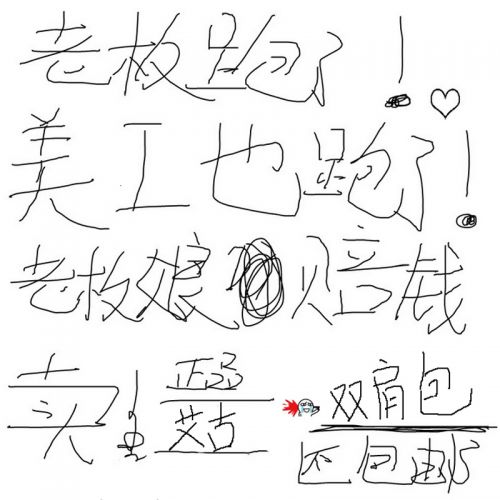 老板跑了!
美工也跑了!
老板娘赔钱
卖!
正品
双肩包
还包邮